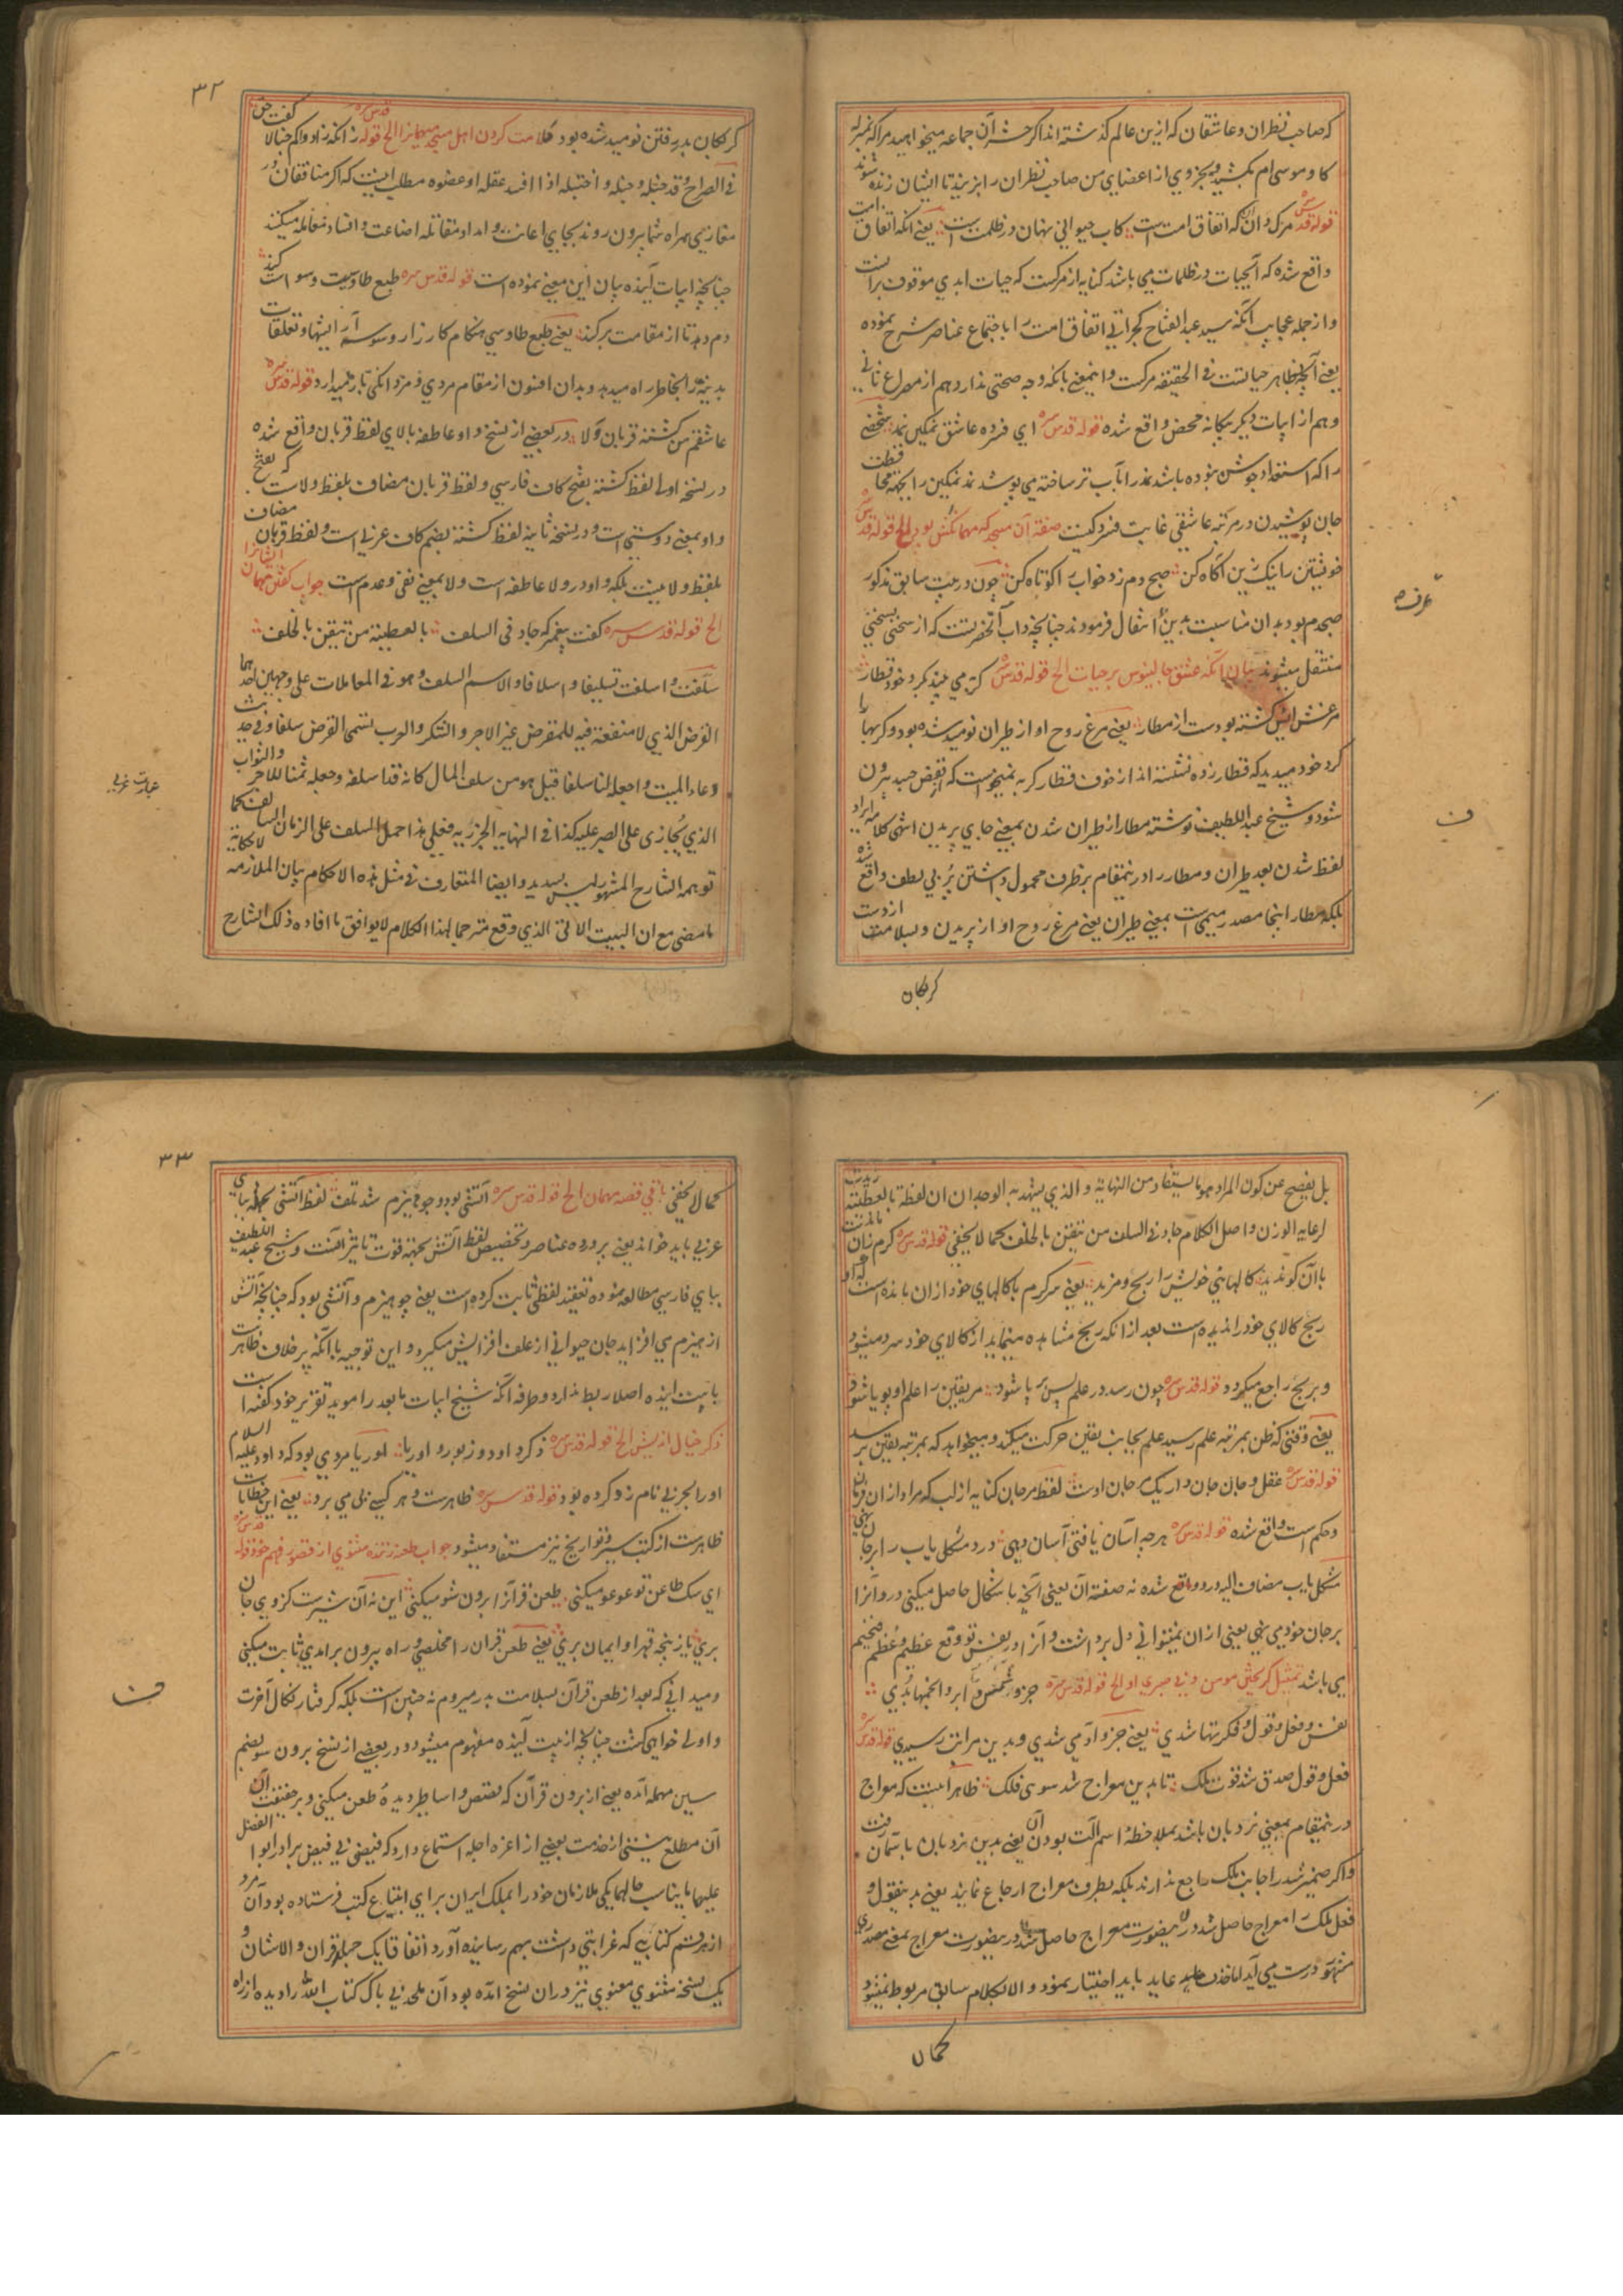 که صاحب نظران و عاشقان که ازین عالم گذشته اند اکر حشر آن جماعه میخواهید مرا که بمنزله
کاو موسی ام بکشید و بجزوی از اعضای من صاحب نظران را بزنید تا ایشان زنده شوند
قوله قدس سره مرک دان آن که اتفاق امت است کاب حیوانی نهان در ظلمت است یعنی آنکه اتفاق امت
واقع شده که آبحیات در ظلمات می باشد کنایه از مرکست که حیات ابدی موقوف بر آنست
و از جمله عجایب آنکه سید عبد الفتاح کجراتی اتفاق امت را با جتماع عناصر شرح نموده
یعنی آنچه بظاهر حیاتست فی الحقیقه مرکست و اینمعنی بانکه وجه صحتی ندارد هم از مصراع ثانی
و هم از ابیات دیکر بیکانه محض واقع شده قوله قدس سره ای فسرده عاشق ننکین نمد شخصی
را که استعداد جوشن نبوده باشد نمد را بآب تر ساخته می پوشد نمد ننکین را بجهة محافظت
جان پوشیدن در مرتبه عاشقی غایت فسردکیست صفة آن مسجد که مهمانکش بود الخ قوله قدس سره
خویشتن را نیک زین آکاه کن صبح دم زد خواب را کوتاه کن چون در بیت سابق مذکور
صبحدم بود بدان مناسبت بدین انتقال فرمودند چنانچه داب آنحضرتست که از سخنی بسخنی
منتقل میشوند بیان آنکه عشق جالینوس بر حیات الخ قوله قدس سره کربه می بیند بکرد خود قطار
مرغش ایس کشته بودست از مطار یعنی مرغ روح او از طیران نومید شده بود و کربها را
کرد خود میدید که قطار زده نشسته اند از خوف قطار کربه نمیخواست که از قفص جسد بیرون
شود و شیخ عبد اللطیف نوشته مطار از طیران شدن بمعنی جای پریدن انتهی کلامه ایراد
لفظ شدن بعد طیران و مطار را درینمقام بر ظرف محمول داشتن پُر بی لطف واقع شده
بلکه مطار اینجا مصدر میمیست بمعنی طیران یعنی مرغ روح او از پریدن و بسلامت از دست
کربکان
عرفه
ف
۳۲
کربکان بدر رفتن نومید شده بود ملامت کردن اهل مسجد مهمانرا الخ قوله قدس سره زانکه زادوکم خبالا کفت حق
فی الصراح و قد خبله و خبله و اختبله اذا افسد عقله او عضوه مطلب اینست که اکر منافقان در
مغازی همراه شما بیرون روند بجای اعانت و امداد مقاتله اضاعت و افساد معامله میکنند
چنانچه ابیات آینده بیان این معنی نموده است قوله قدس سره طبع طاوسیت وسواست کند
دم دهد تا از مقامت بر کند یعنی طبع طاوسی هنکام کارزار وسوسه آرایشها و تعلقات
بدنیه را بخاطر راه میدهد و بدان افسون از مقام مردی و مردانکی باز میدارد قوله قدس سره
عاشقم من کشته قربان ولا در بعضی از نسخ واو عاطفه بالای لفظ قربان واقع شده
در نسخه اولی لفظ کشته بفتح کاف فارسی و لفظ قربان مضاف بلفظ ولاست که بفتح
واو بمعنی دوستیست و در نسخه ثانیه لفظ کشته بضم کاف عربی است و لفظ قربان مضاف
بلفظ ولا نیست بلکه واو در ولا عاطفه است ولا بمعنی نفی و عدم است جواب کفتن مهمان ایشانرا
الخ قوله قدس سره کفت پیغمبر که جاد فی السلف بالعطیة من تیقن بالخلف
سلّفت و اسلفت تسلیفا و اسلافا و الاسم السلف و هو فی المعاملات علی وجهین احدهما
القرض الذی لا منفعة فیه للمقرض غیر الاجر و الشکر و العرب تسمی القرض سلفا و فی حدیث
دعاء المیت و اجعله لنا سلفا قیل هو من سلف المال کانه قد اسلفه و جعله ثمنا للاجر و الثواب
الذی یُجازی علی الصبر علیه کذا فی النهایه الجزریه فعلی هذا حمل السلف علی الزمان السالف کما
توهمه الشارح المشهور لیس بسدید و ایضا المتعارف فی مثل هذه الاحکام بیان الملازمه لا حکایة
ما مضی مع ان البیت الاتی الذی وقع مترجما لهذا الکلام لا یوافق ما افاده ذلک الشارح
عبارت عربی
بل یفصح عن کون المراد هو ما یستفاد من النهایة و الذی یشهد به الوجدان ان لفظة بالعطیة زیدت
لرعایه الوزن و اصل الکلام جاد فی السلف من تیقن بالخلف کما لا یخفی قوله قدس سره کرم زان ماندست
با آن کو ندید کالهای خویش را ربح و مزید یعنی سرکرم با کالهای خود از ان مانده است که او
ربح کالای خود را ندیده است بعد از انکه ربح مشاهده مینماید از کالای خود سرد میشود
و بربح راجع میکردد قوله قدس سره چون رسد در علم پس پُر پا شود مر یقین را علم او پویا شود
یعنی وقتی که ظن بمرتبه علم رسید علم بجانب یقین حرکت میکند و میخواهد که بمرتبه یقین برسد
قوله قدس سره عقل و جان جاندار یک مرجان اوست لفظ مرجان کنایه از لب که مراد از ان فرمان
و حکم است واقع شده قوله قدس سره هرچه آسان یافتی آسان دهی درد مشکل یاب را بر جان نهی
مشکل یاب مضاف الیه درد واقع شده نه صفة آن یعنی آنچه باشکال حاصل میکنی درد آنرا
بر جان خود می نهی یعنی از ان نمیتوانی دل برداشت و آنرا در نفس تو وقع عظیم و عُظم ضخیم
می باشد تمثیل کریختن مومن و بی صبری او الخ قوله قدس سره جزو شمس و ابر و انجمها بُدی
نفس و فعل و قول و فکرتها شدی یعنی جزو آدمی شدی و بدین مراتب رسیدی قوله قدس سره
فعل و قول صدق شد قوت ملک تا بدین معراج شد سوی فلک ظاهر اینست که معراج
درینمقام بمعنی نردبان باشد بملاحظهٔ اسم آلت بودن آن یعنی بدین نردبان باسمان رفت
و اکر ضمیر شد راجانب ملک راجع ندارند بلکه بطرف معراج ارجاع نمایند یعنی بدینقول و
فعل ملک را معراج حاصل شد درینصورت معراج بمعنی مصدری
مشهور درست می آید اما حذف عاید باید اختیار نمود و الا بکلام سابق مربوط نمیشود
کمان
۳۳
کما لا یخفی باقی قصه مهمان الخ قوله قدس سره آتشی بود و چو هیزم شد تلف لفظ آتشی بجهة بیای
عربی باید خواند یعنی پرورده عناصر و تخصیص لفظ آتش بجهة قوت تاثیر آنست و شیخ عبد اللطیف
بیای فارسی مطالعه نموده تعقید لفظی ثابت کرده است یعنی چو هیزم و آتشی بود که چنانچه آتش
از هیزم می افزاید جان حیوانی از علف افزایش میکیرد و این توجیه با آنکه بر خلاف ظاهر است
با بیت آینده اصلا ربط ندارد و طرفه آنکه شیخ ابیات ما بعد را موید تقریر خود کفته است
ذکر خیال اندیش الخ قوله قدس سره ذکر داود و زبور و اوریا اوریا مردی بود که داود علیه السلام
او را بحربی نام زد کرده بود قوله قدس سره ظاهرست و هر کسی پی می برد یعنی این خطابات
ظاهرست از کتب سیر و تواریخ نیز مستفاد میشود جواب طعنه زننده مثنوی از قصور فهم خود قوله قدس سره
ای سک طاعن تو عوعو میکنی طعن قرآنرا برون شو میکنی این نه آن شیرست کز وی جان
بری یا ز پنجه قهر او ایمان بری یعنی طعن قران را مخلصی و راه بیرون برامدی ثابت میکنی
و میدانی که بعد از طعن قرآن بسلامت بدر میروم نه چنین است بلکه کرفتار نکال آخرت
و اولی خواهی کشت چنانچه از بیت آینده مفهوم میشود و در بعضی از نسخ برون سو بضم
سین مهمله آمده یعنی از برون قرآن که قصص و اساطیر دیدهٔ طعن میکنی و بر حقیقت آن
آن مطلع نیستی از خدمت بعضی از اعزه اجله استماع دارد که فیضی بی فیض برادر ابوالفضل
علیهما ما یناسب حالهما یکی ملازمان خود را بملک ایران برای ابتیاع کتب فرستاده بود آن مرد
از هر قسم کتابی که غرابتی داشت بهم رسانیده آورد اتفاقا یک جلد قران والاشان و
یک نسخه مثنوی معنوی نیز دران نسخ آمده بود آن ملحد بی باک کتاب الله را دیده از راه
ف